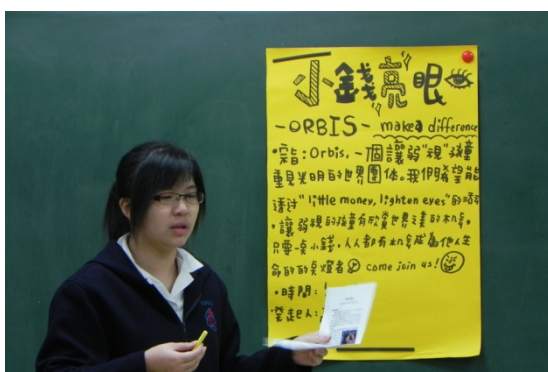 小錢亮眼
-ORBIS- make a difference
•宗旨:Orbis,一個讓弱"視"孩童
重見光明的世界團体。我們希望能
透过"little money, lighten eyes"的活动
,讓弱視的孩童有欣賞世界之美的机会,
只要一点小錢,人人都有机会成為他人生
命的的点燈者 come join us!
•時間:
•發起人: